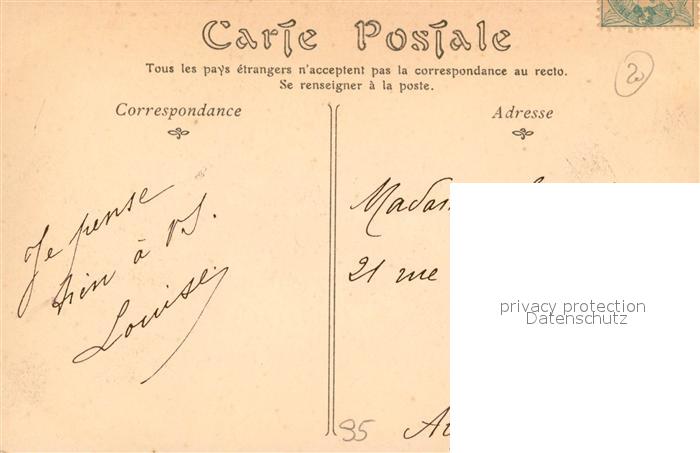 Carte Postale
Tous les pays étrangers n'acceptent pas la correspondance au recto.
Se renseigner à la poste.
Correspondance
Adresse
2
Je pense
bien à vs.
Louise
Madam
21 rue
privacy protection
Datenschutz
95